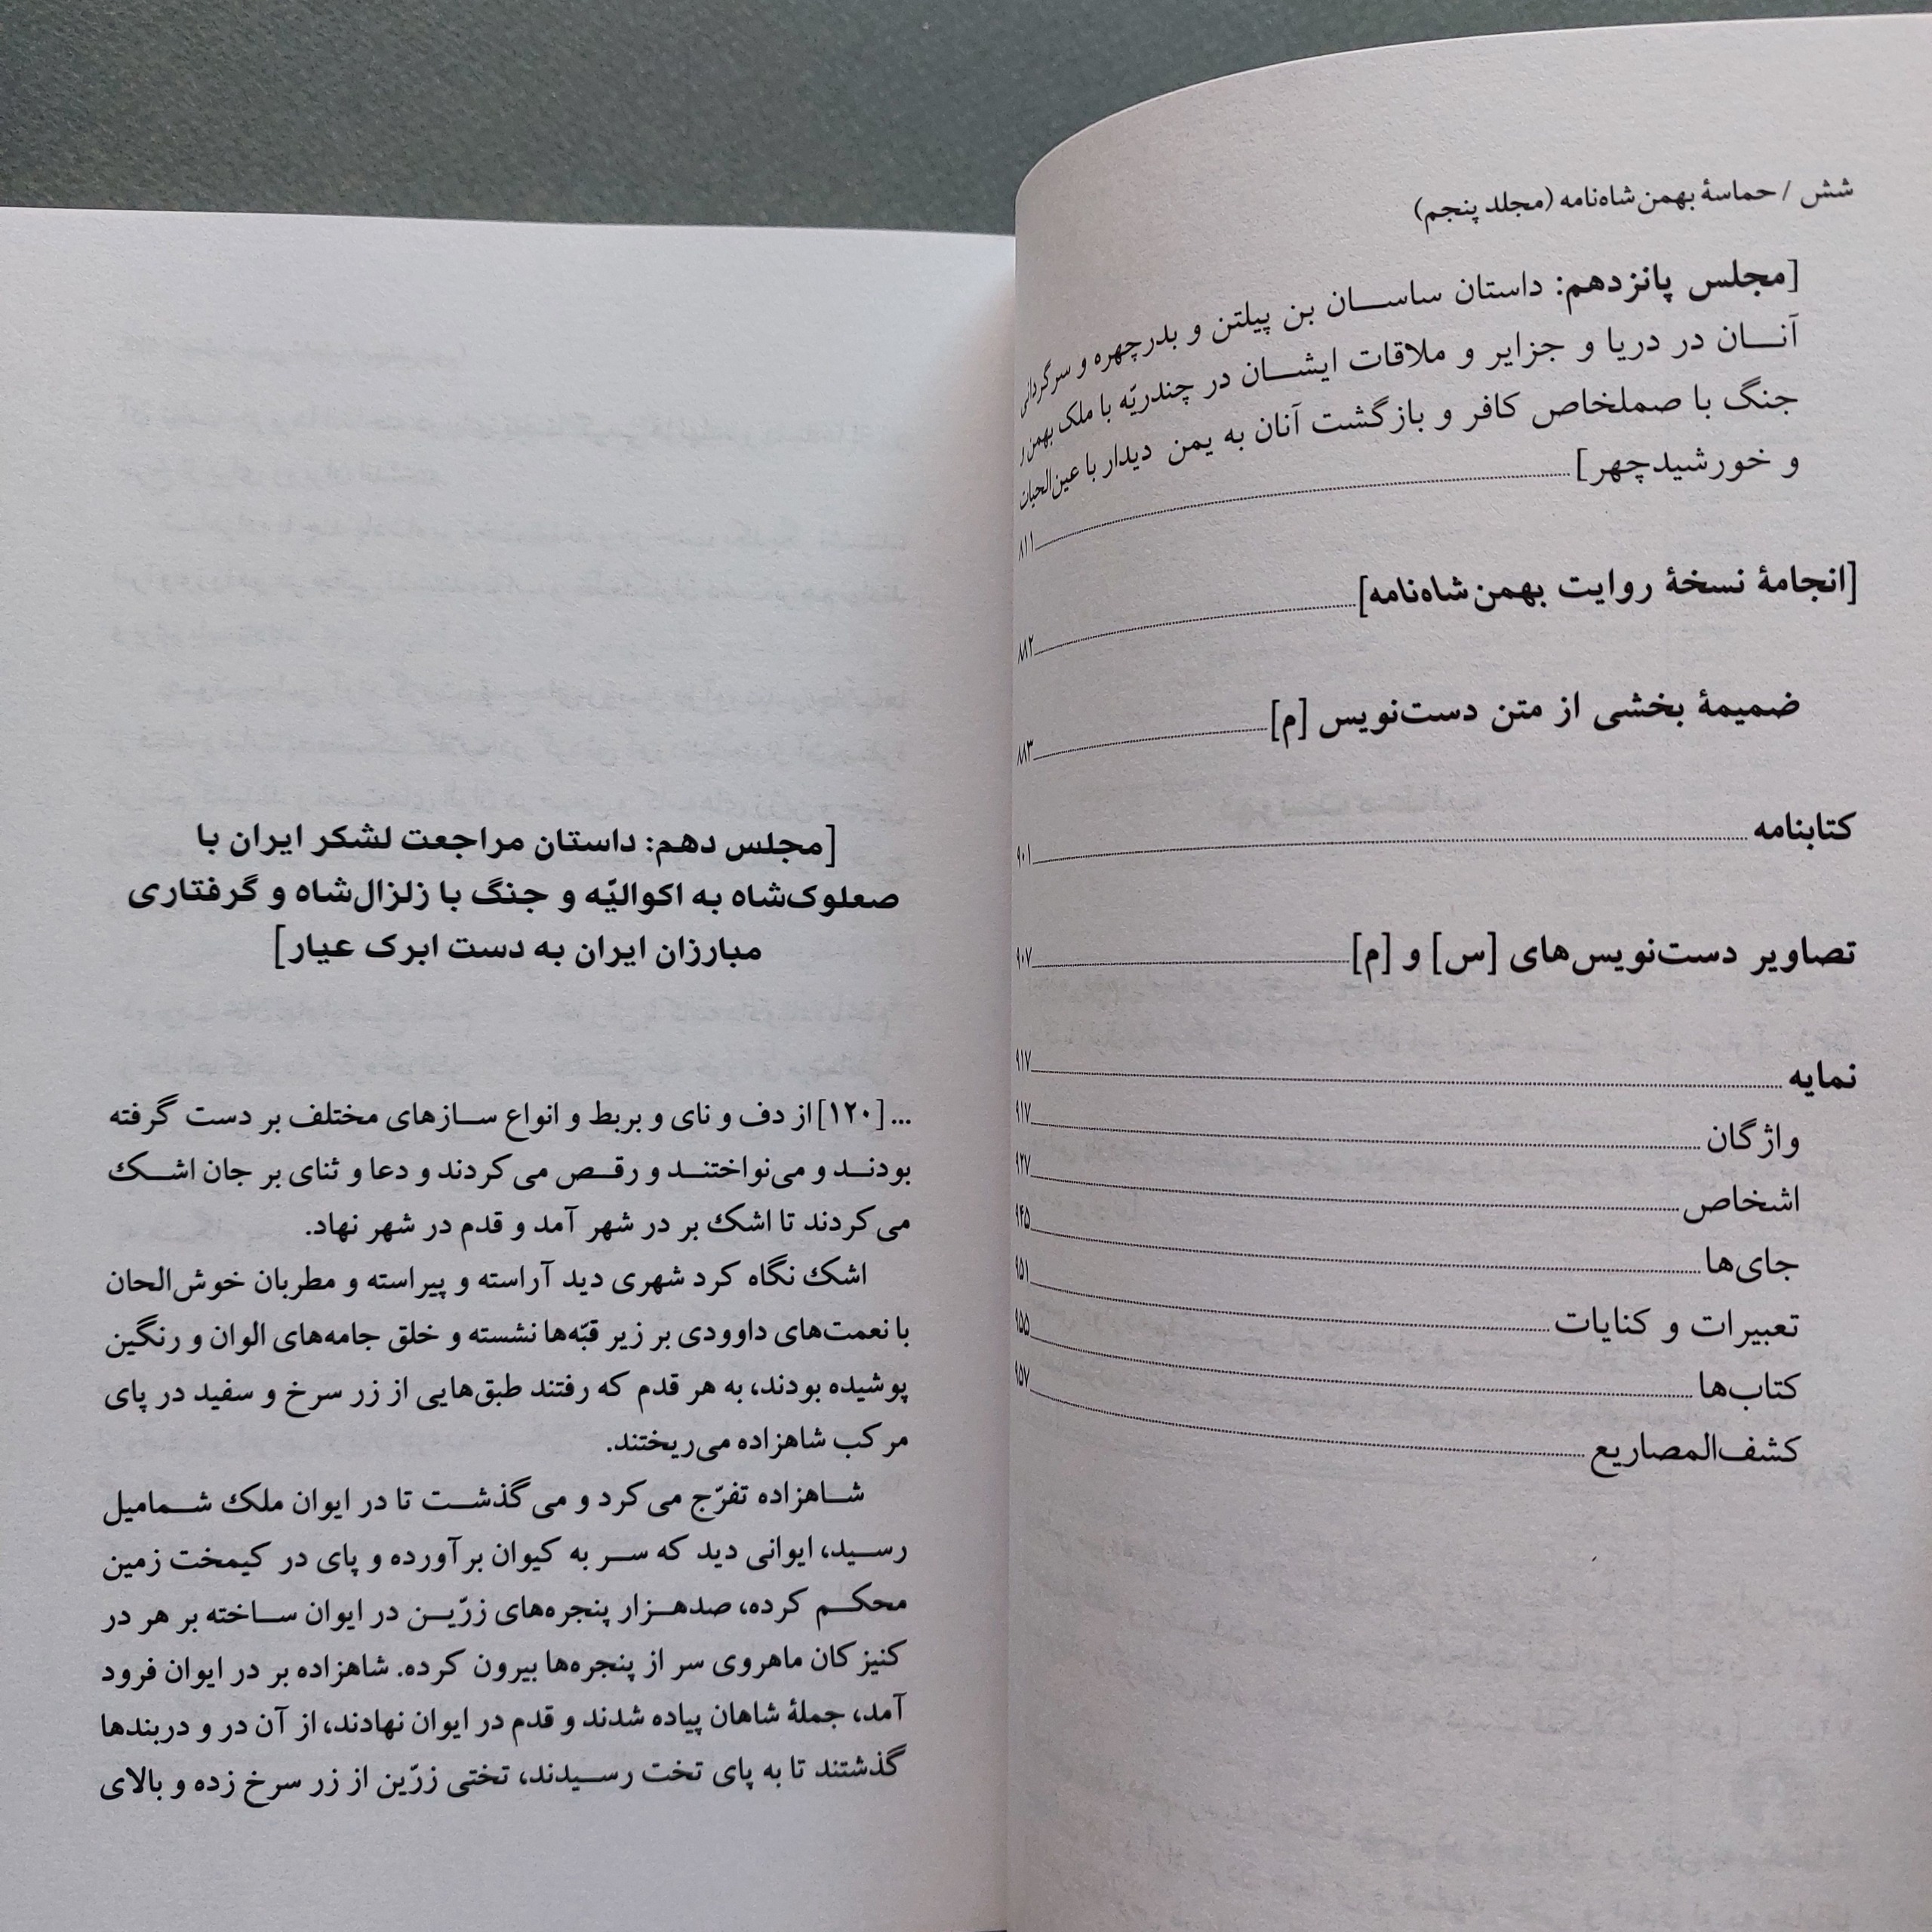 شش / حماسهٔ بهمن‌شاه‌نامه (مجلد پنجم)
[مجلس پانزدهم: داستان ساسان بن پیلتن و بدرچهره و سرگردانی
آنان در دریا و جزایر و ملاقات ایشان در چندریّه با ملک بهمن
جنگ با صملخاص کافر و بازگشت آنان به یمن دیدار با عین‌الحیات
و خورشیدچهر] ۸۱۱
[انجامهٔ نسخهٔ روایت بهمن‌شاه‌نامه] ۸۸۲
ضمیمهٔ بخشی از متن دست‌نویس [م] ۸۸۳
کتابنامه ۹۰۱
تصاویر دست‌نویس‌های [س] و [م] ۹۰۷
نمایه ۹۱۷
واژگان ۹۱۷
اشخاص ۹۲۷
جای‌ها ۹۴۵
تعبیرات و کنایات ۹۵۱
کتاب‌ها ۹۵۵
کشف‌المصاریع ۹۵۷
[مجلس دهم: داستان مراجعت لشکر ایران با
صعلوک‌شاه به اکوالیّه و جنگ با زلزال‌شاه و گرفتاری
مبارزان ایران به دست ابرک عیار]
... [۱۲۰] از دف و نای و بربط و انواع سازهای مختلف بر دست گرفته
بودند و می‌نواختند و رقص می‌کردند و دعا و ثنای بر جان اشک
می‌کردند تا اشک بر در شهر آمد و قدم در شهر نهاد.
اشک نگاه کرد شهری دید آراسته و پیراسته و مطربان خوش‌الحان
با نعمت‌های داوودی بر زیر قبّه‌ها نشسته و خلق جامه‌های الوان و رنگین
پوشیده بودند، به هر قدم که رفتند طبق‌هایی از زر سرخ و سفید در پای
مرکب شاهزاده می‌ریختند.
شاهزاده تفرّج می‌کرد و می‌گذشت تا در ایوان ملک شمامیل
رسید، ایوانی دید که سر به کیوان برآورده و پای در کیمخت زمین
محکم کرده، صدهزار پنجره‌های زرّین در ایوان ساخته بر هر در
کنیزکان ماهروی سر از پنجره‌ها بیرون کرده. شاهزاده بر در ایوان فرود
آمد، جملهٔ شاهان پیاده شدند و قدم در ایوان نهادند، از آن در و دربندها
گذشتند تا به پای تخت رسیدند، تختی زرّین از زر سرخ زده و بالای